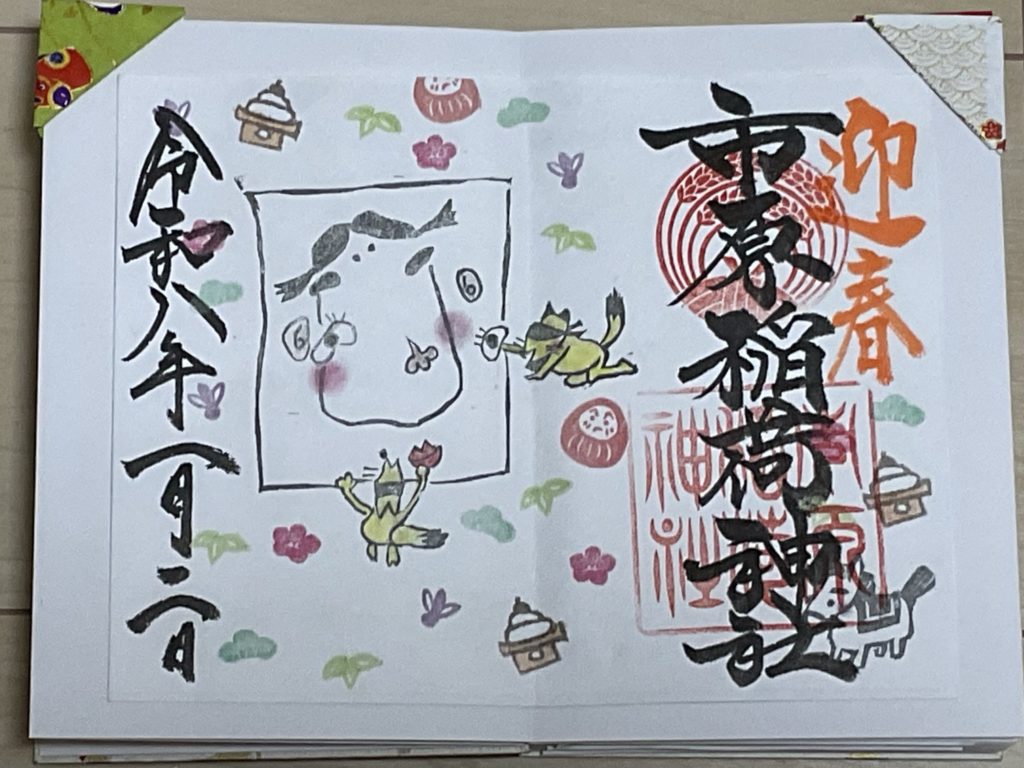 迎春
市原稲荷神社
令和八年一月二日